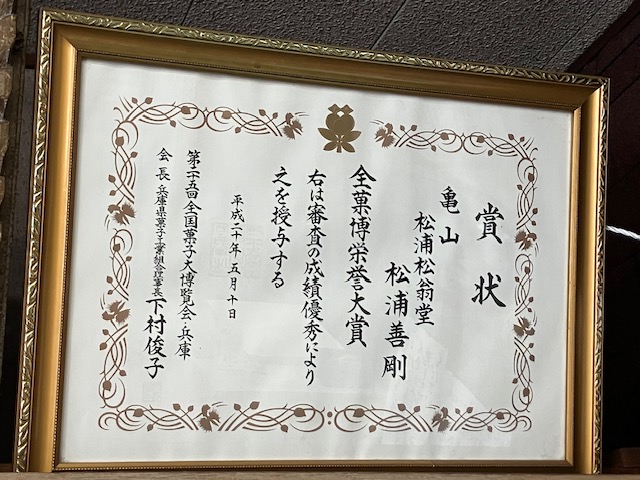 賞状
亀山
松浦松翁堂
松浦善剛
全菓博栄誉大賞
右は審査の成績優秀により
之を授与する
平成二十年五月十日
第二十五回全国菓子大博覧会・兵庫
会長 兵庫県菓子工業組合理事長 下村俊子